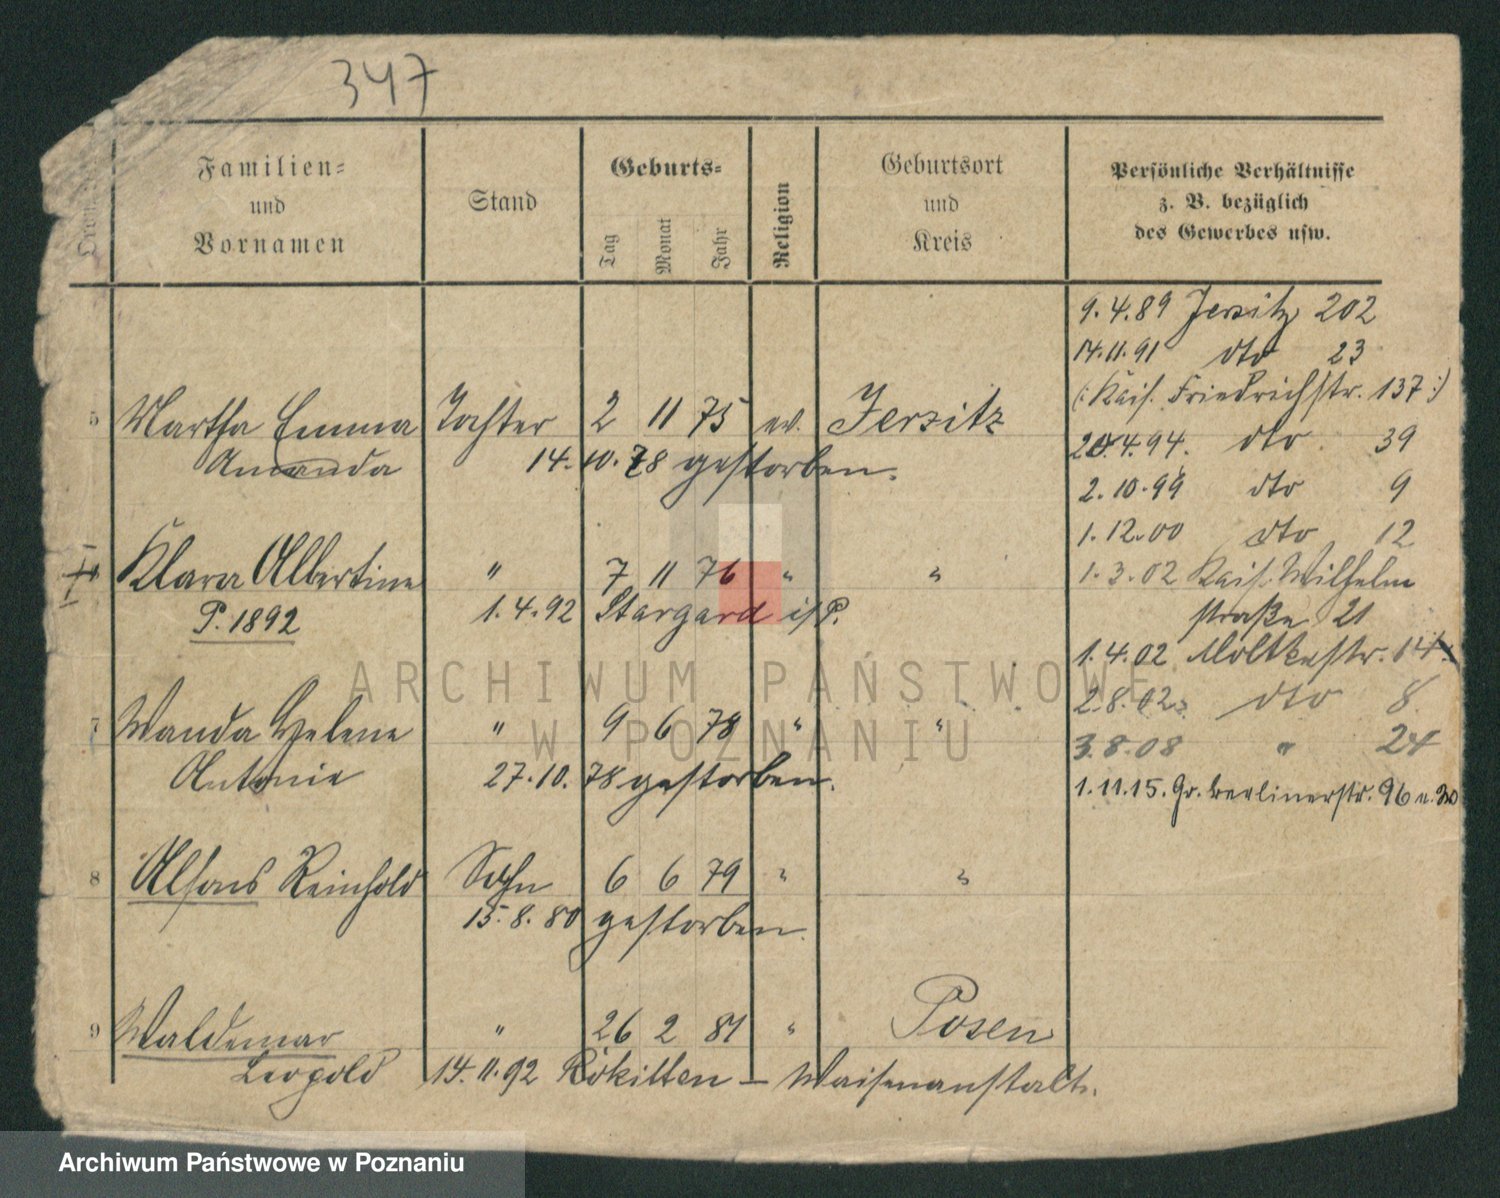 347
Familien-
und
Vornamen
Stand
Geburts-
Tag
Monat
Jahr
Religion
Geburtsort
und
Kreis
Persönliche Verhältnisse
z. B. bezüglich
des Gewerbes usw.
9.4.89 Jersitz 202
14.11.91 dto 23
(: Kais. Friedrichstr. 137 :)
5 Martha Emma Tochter 2 11 75 ev. Jersitz
4.94. dto 39
Amanda 14.10.78 gestorben.
2.10.99 dto 9
1.12.00 dto 12
Klara Albertine " 7 11 76 " "
1.3.02 Kais. Wilhelm
P. 1892 1.4.92 Stargard i/P.
straße 21
1.4.02 Moltkestr. 14
2.8.02 dto 8
7 Wanda Helene " 9 6 78 " "
3.8.08 " 24
Antonie 27.10.78 gestorben.
1.11.15. Gr. Berlinerstr. 96 u.
8 Alfons Reinhold Sohn 6 6 79 " "
15.8.80 gestorben.
9 Waldemar " 26 2 81 " Posen
Leopold 14.11.92 Rokitten – Waisenanstalt.
ARCHIWUM PAŃSTWOWE
W POZNANIU
Archiwum Państwowe w Poznaniu